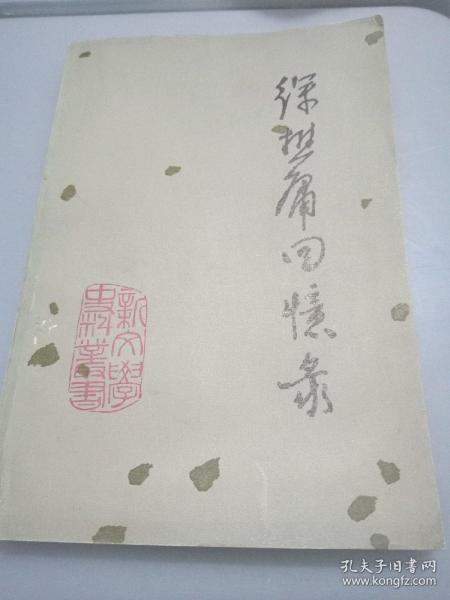 徐懋庸回忆录
新文學
史料叢書
孔夫子旧书网
www.kongfz.com